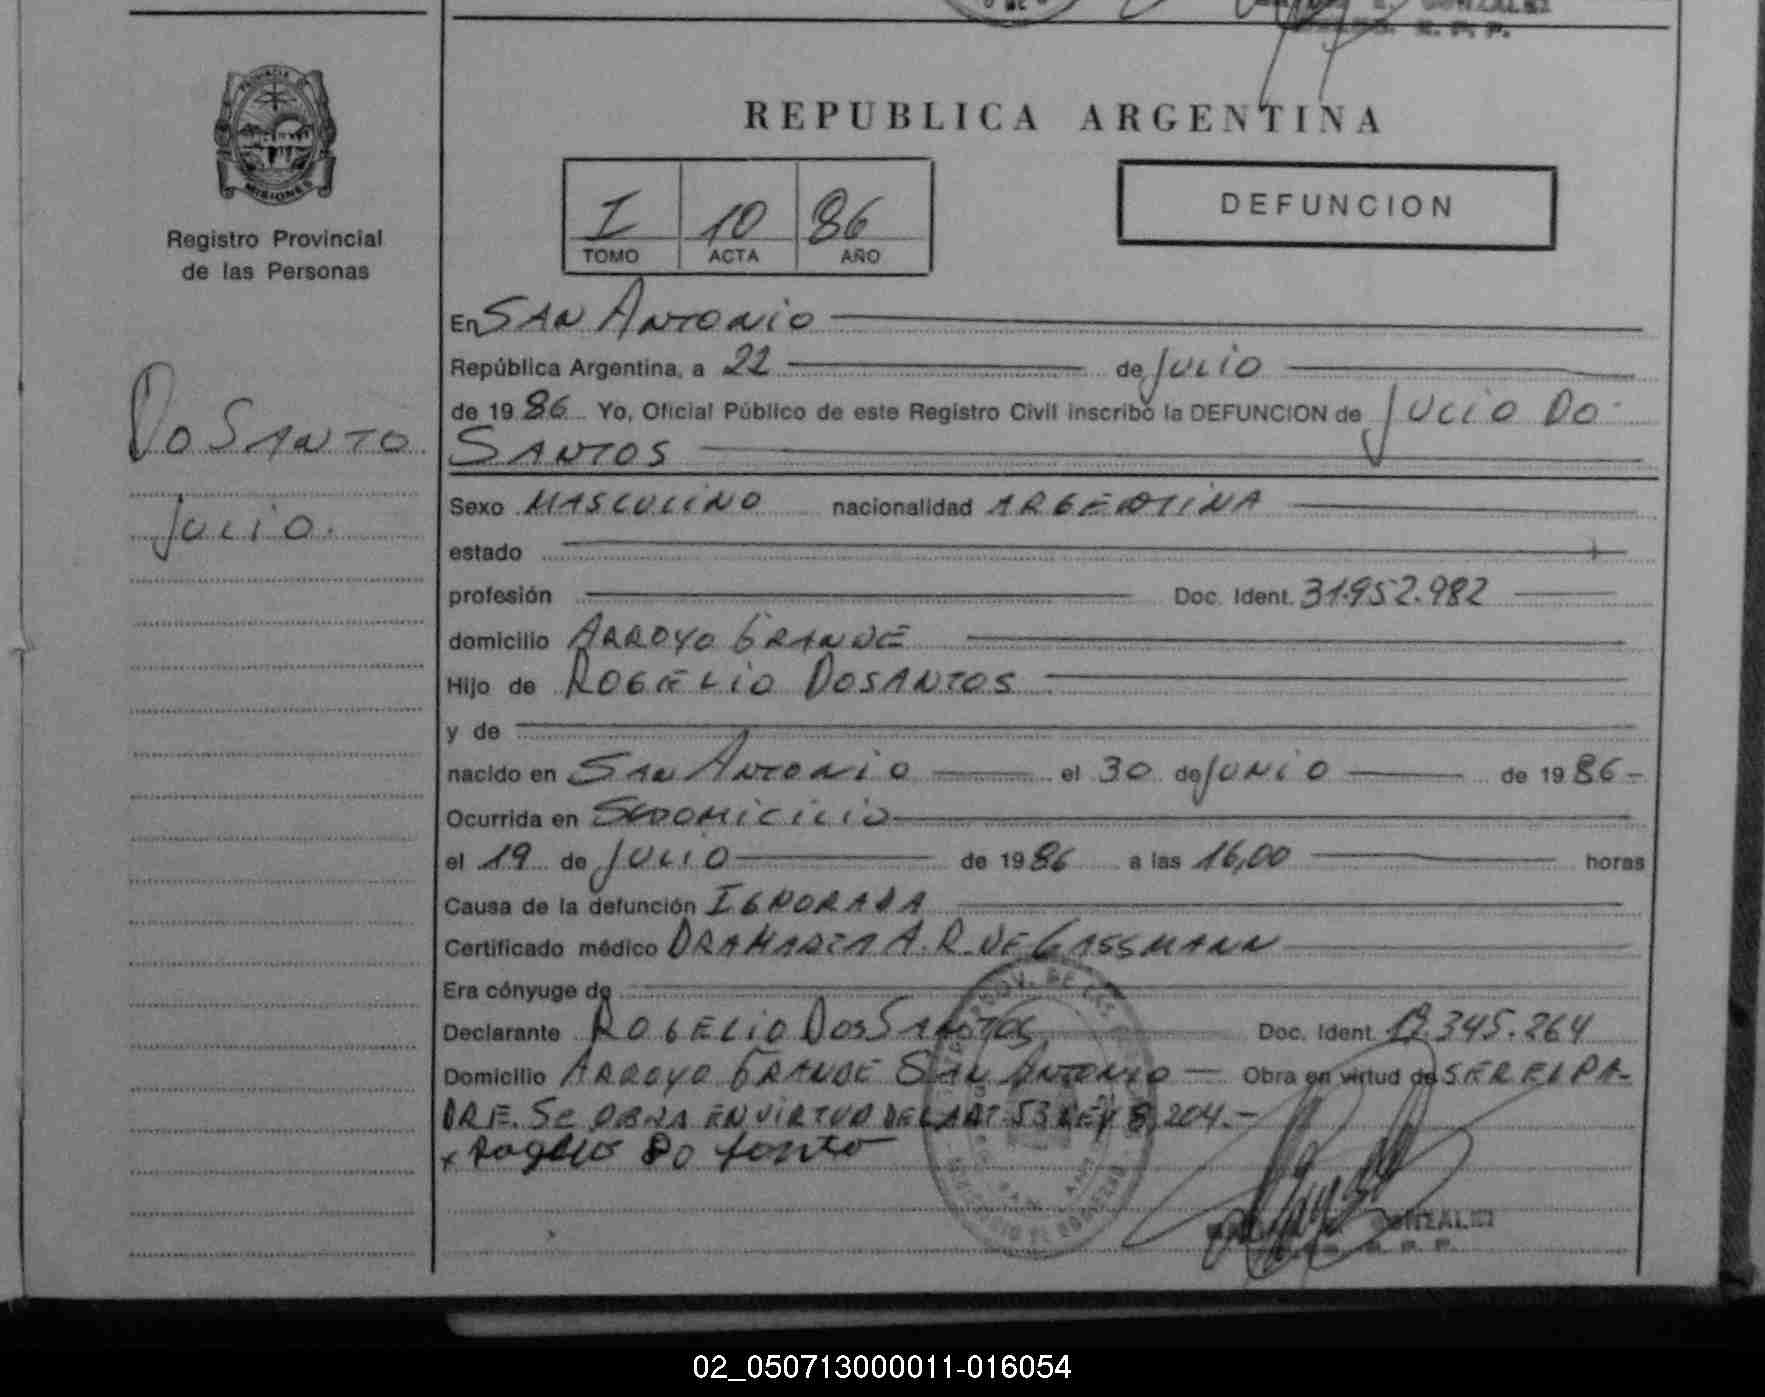 GONZALEZ
R. P. P.
PROVINCIA DE
MISIONES
Registro Provincial
de las Personas
REPUBLICA ARGENTINA
I 10 86
TOMO ACTA AÑO
DEFUNCION
En SAN ANTONIO
República Argentina, a 22 de JULIO
de 19 86 Yo, Oficial Público de este Registro Civil inscribo la DEFUNCION de JULIO DO
SANTOS
DO SANTO
JULIO.
Sexo MASCULINO nacionalidad ARGENTINA
estado
profesión Doc. Ident. 31.952.982
domicilio ARROYO GRANDE
Hijo de ROGELIO DOSANTOS
y de
nacido en SAN ANTONIO el 30 de JUNIO de 19 86-
Ocurrida en SUDOMICILIO
el 19 de JULIO de 1986 a las 16,00 horas
Causa de la defunción IGNORADA
Certificado médico DRA MARIA A. R. DE GASSMANN
Era cónyuge de
Declarante ROGELIO DOS SANTOS Doc. Ident. 12.345.264
Domicilio ARROYO GRANDE SAN ANTONIO - Obra en virtud de SER EL PA-
DRE. SE OBRA EN VIRTUD DEL ART 53 LEY 8.204.-
x Rogelio Do santo
GONZALEZ
R. P. P.
02_050713000011-016054